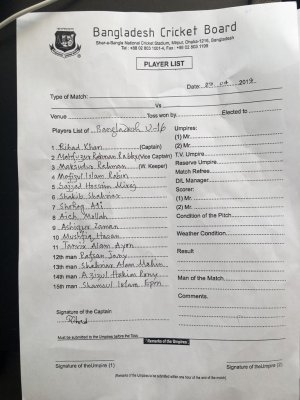 Bangladesh Cricket Board
Sher-e-Bangla National Cricket Stadium, Mirpur, Dhaka-1216, Bangladesh
Tel : +88 02 803 1001-4, Fax : +88 02 803 1199
PLAYER LIST
Date: 23 04 2012
Type of Match:
Vs
Venue Toss won by: Elected to:
Players List of Bangladesh U-16
1 Rihad Khan (Captain)
2 Mahfuzur Rahman (Vice Captain)
3 Maksudur Rahman (W. Keeper)
4 Mofizul Islam Robin
5 Sajjad Hossain
6 Shakib Shahriar
7 Sohag Ali
8 Aich Mollah
9 Ashiqur Zaman
10 Mushfiq Hasan
11 Tanvir Alam Ayon
12th man Rafsan Jany
13th man Shahriar Alam Mahin
14th man Azizul Hakim Rony
15th man Shamsul Islam
Signature of the Captain
Rihad
Must be submitted to the Umpires before the Toss
Umpires:
(1) Mr.
(2) Mr.
T.V. Umpire
Reserve Umpire
Match Refree
D/L Manager
Scorer:
(1) Mr.
(2) Mr.
Condition of the Pitch
Weather Condition:
Result
Man of the Match:
Comments.
*Remarks of the Umpires
Signature of theUmpire (1) Signature of theUmpire (2)
(Remarks of the Umpires to be submitted within one hour of the end of the match)